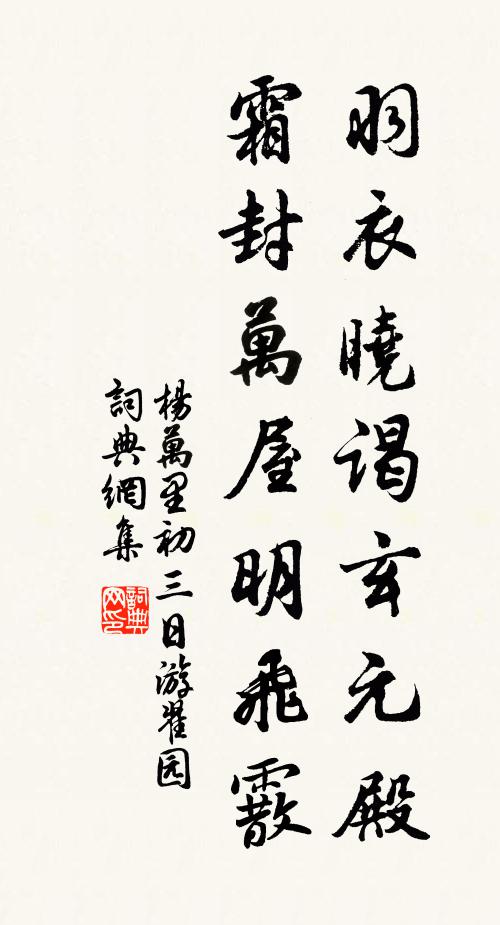 羽衣曉谒玄元殿
霜封萬屋明飛霰
楊萬里初三日游瞿园
詞典網集
詞典网印